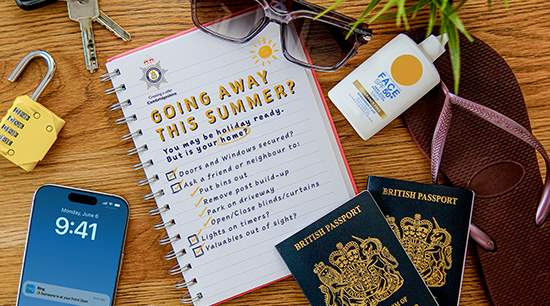 Creating a safer
Cambridgeshire
GOING AWAY
THIS SUMMER?
You may be holiday ready.
But is your home?
Doors and Windows secured?
Ask a friend or neighbour to:
Put bins out
Remove post build-up
Park on driveway
Open/Close blinds/curtains
Lights on timers?
Valuables out of sight?
FACE
50
Monday, June 6
9:41
Ring
BRITISH PASSPORT
BRITISH PASSPORT